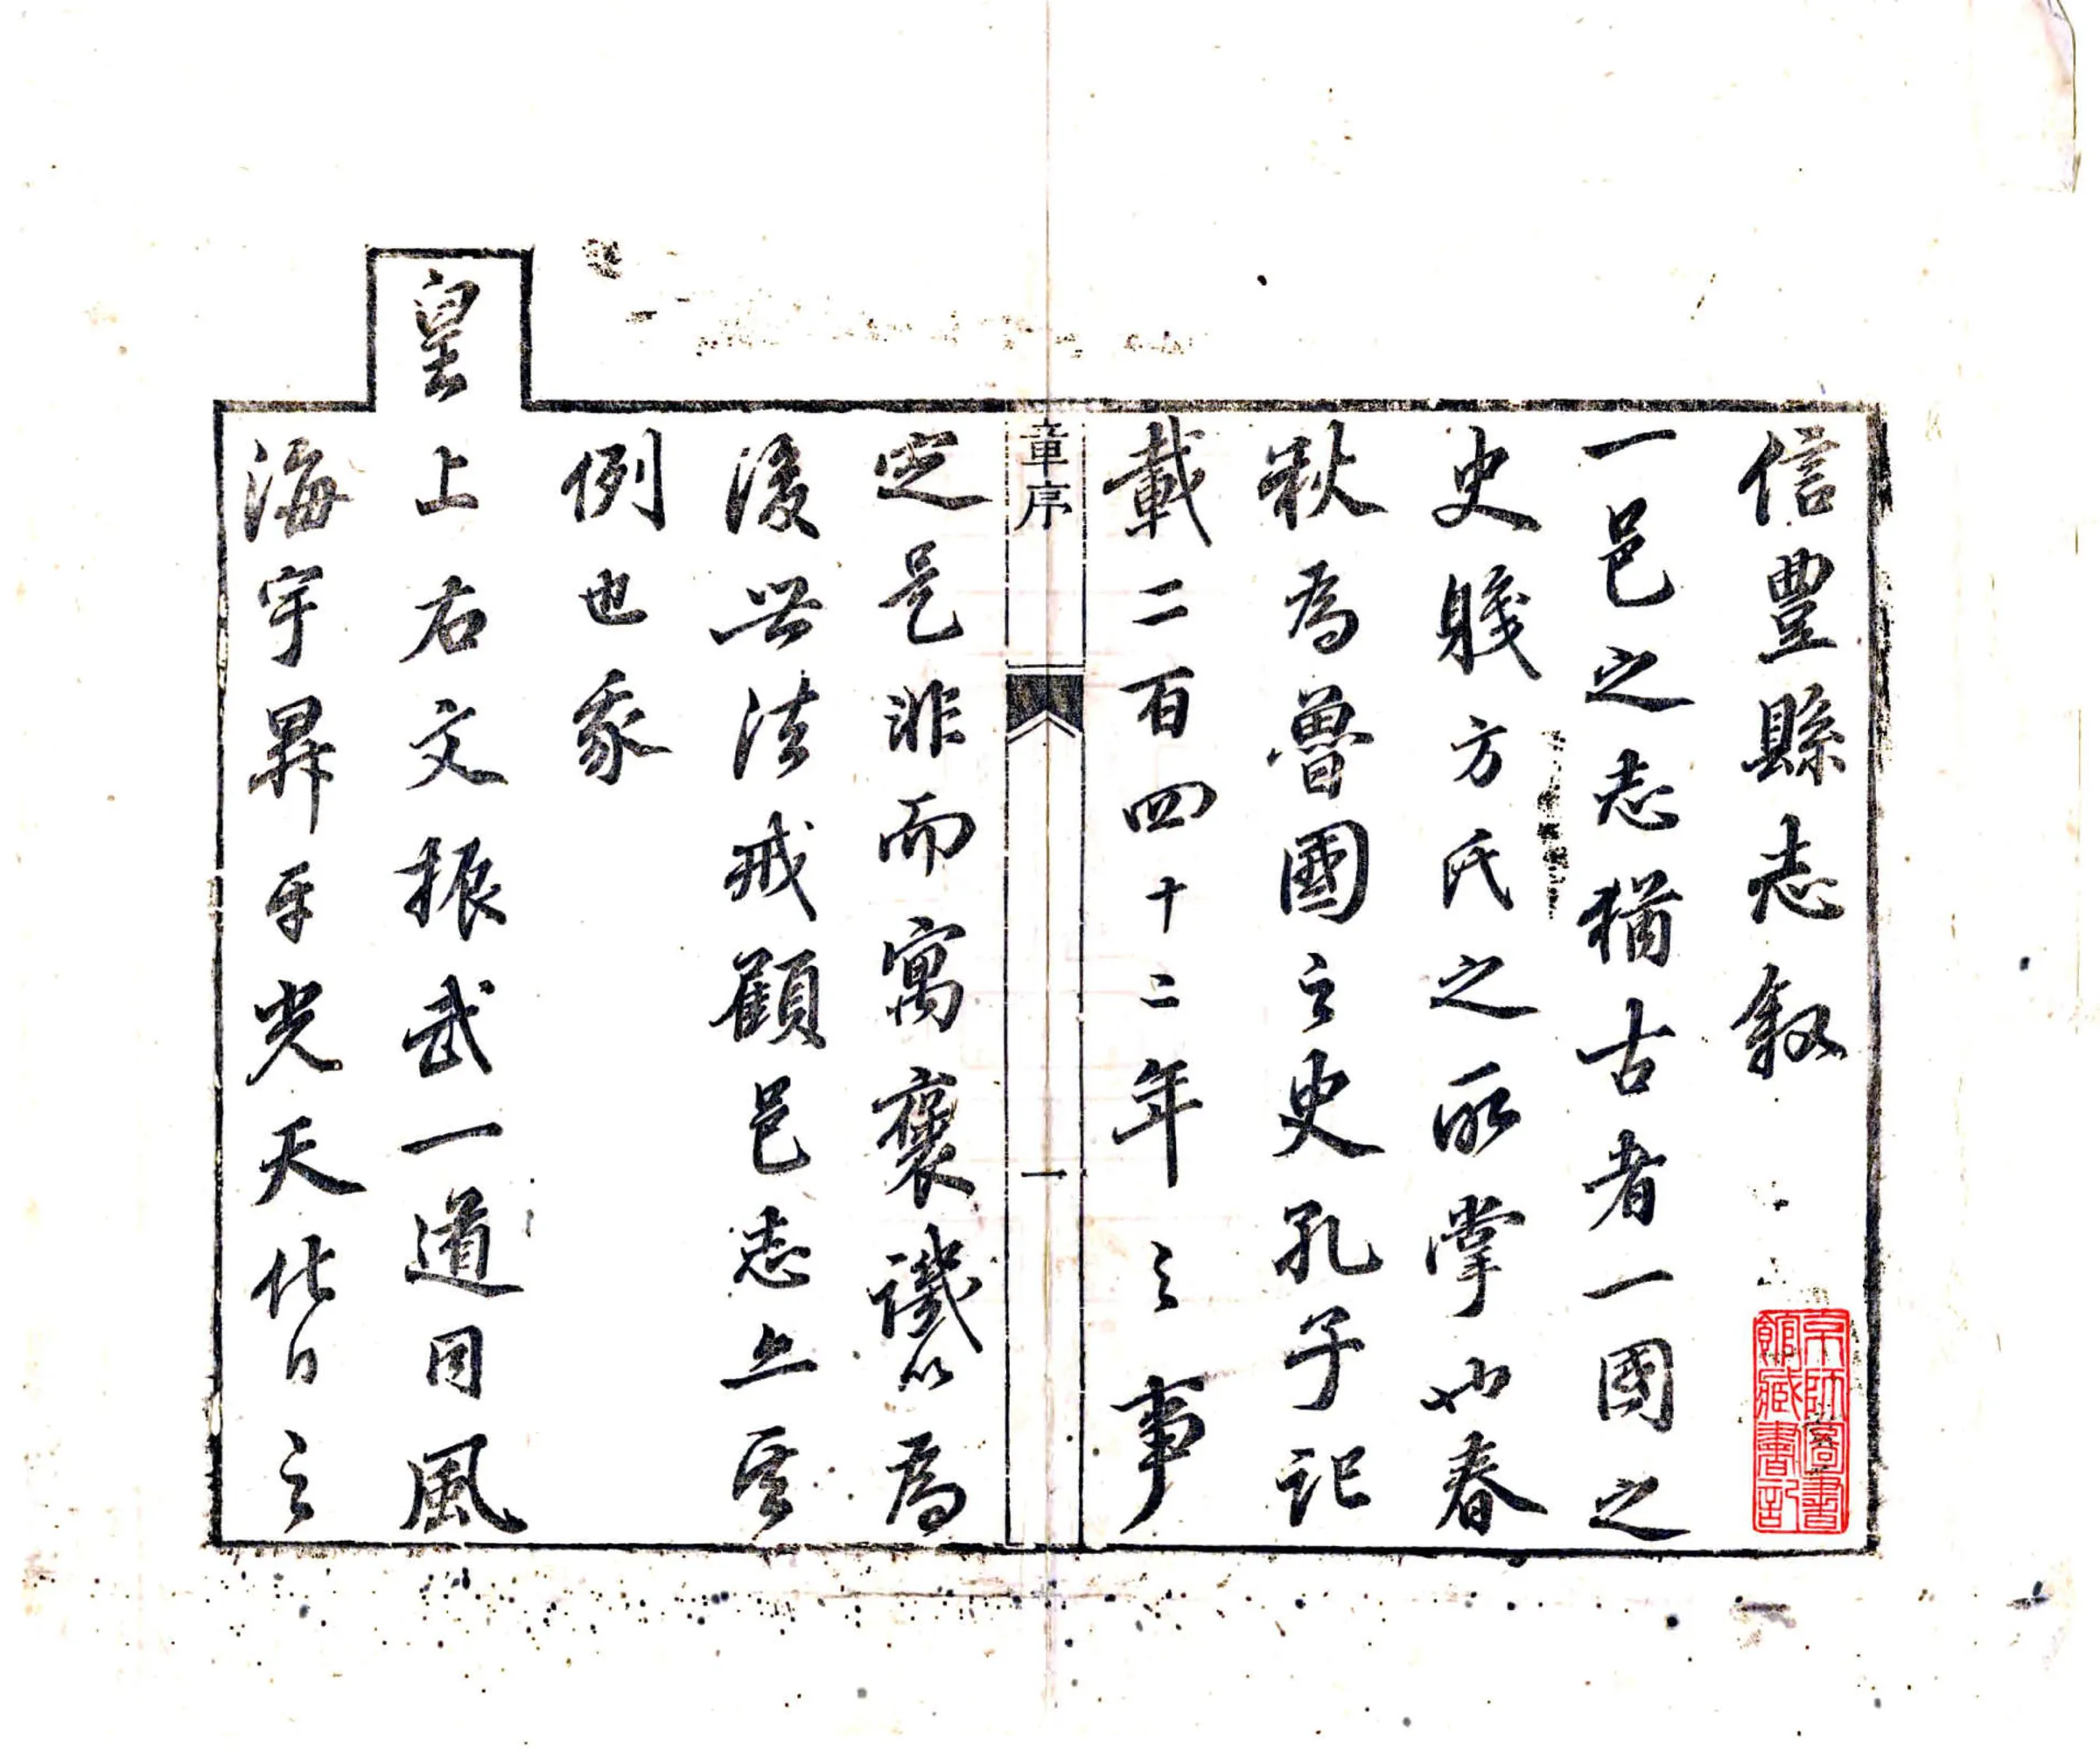 信豐縣志叙
京師圖書館藏書記
一邑之志猶古者一國之
史職方氏之所掌也春
秋為魯國之史孔子記
載二百四十二年之事
章序
一
定是非而寓褒譏以為
後世法戒顧邑志亦其
例也我
皇上右文振武一道同風
海宇昇平光天化日之